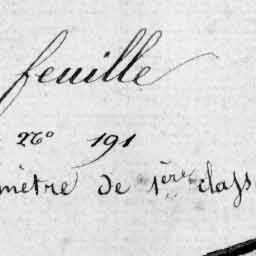 feuille
No 191
mètre de 1ère class